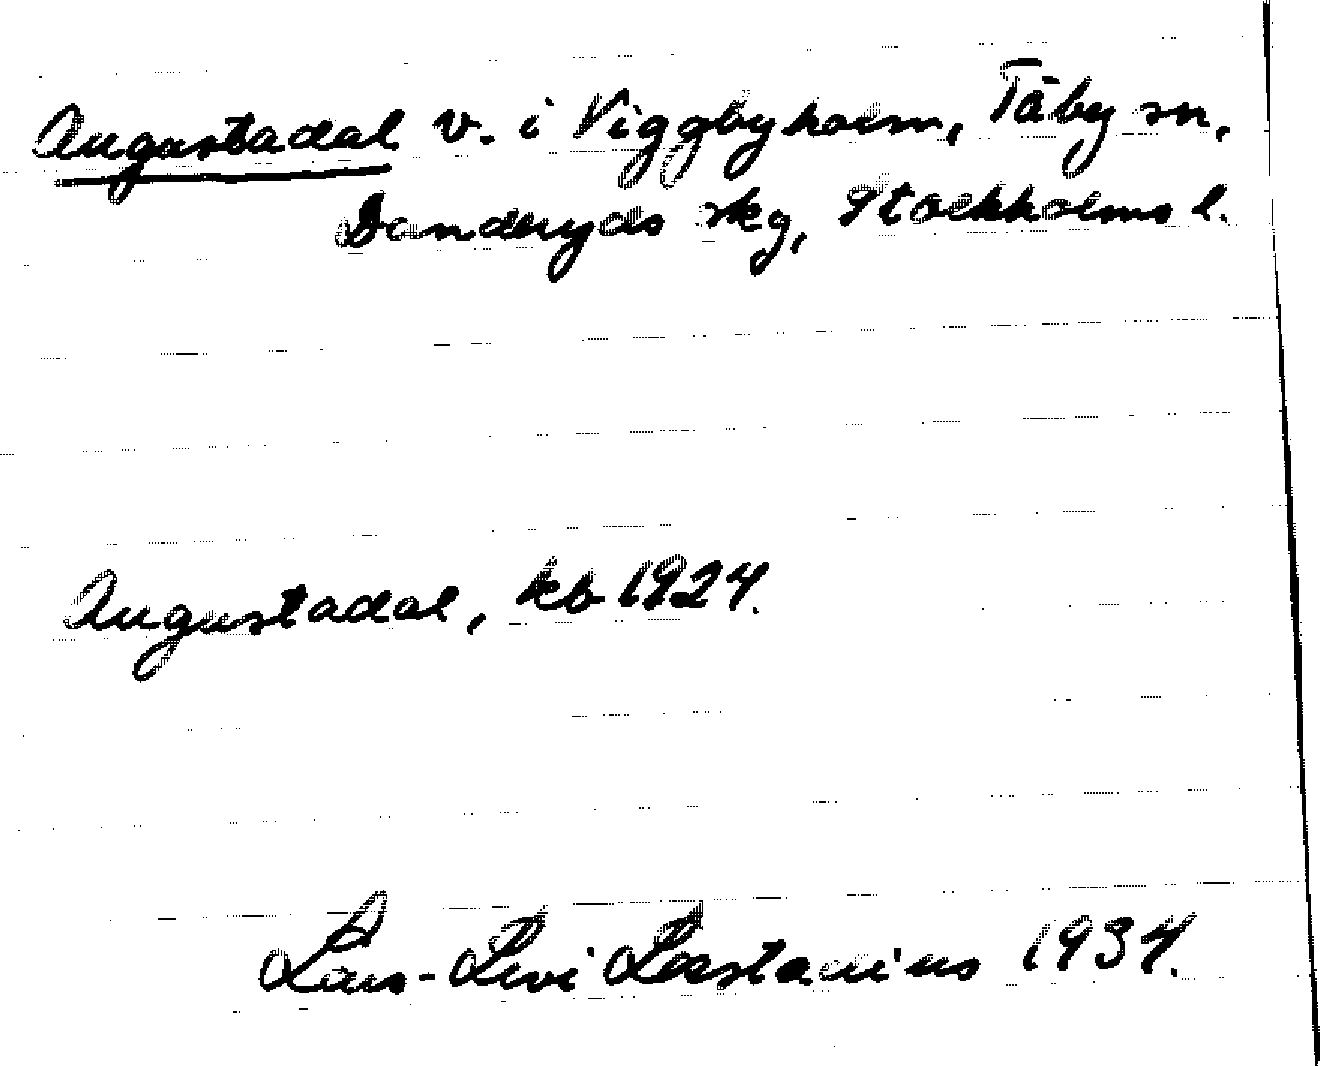 Augustadal v. i Viggbyholm, Täby sn,
Danderyds skg, Stockholms l.
Augustadal, kb 1924.
Lars-Levi Læstadius 1934.